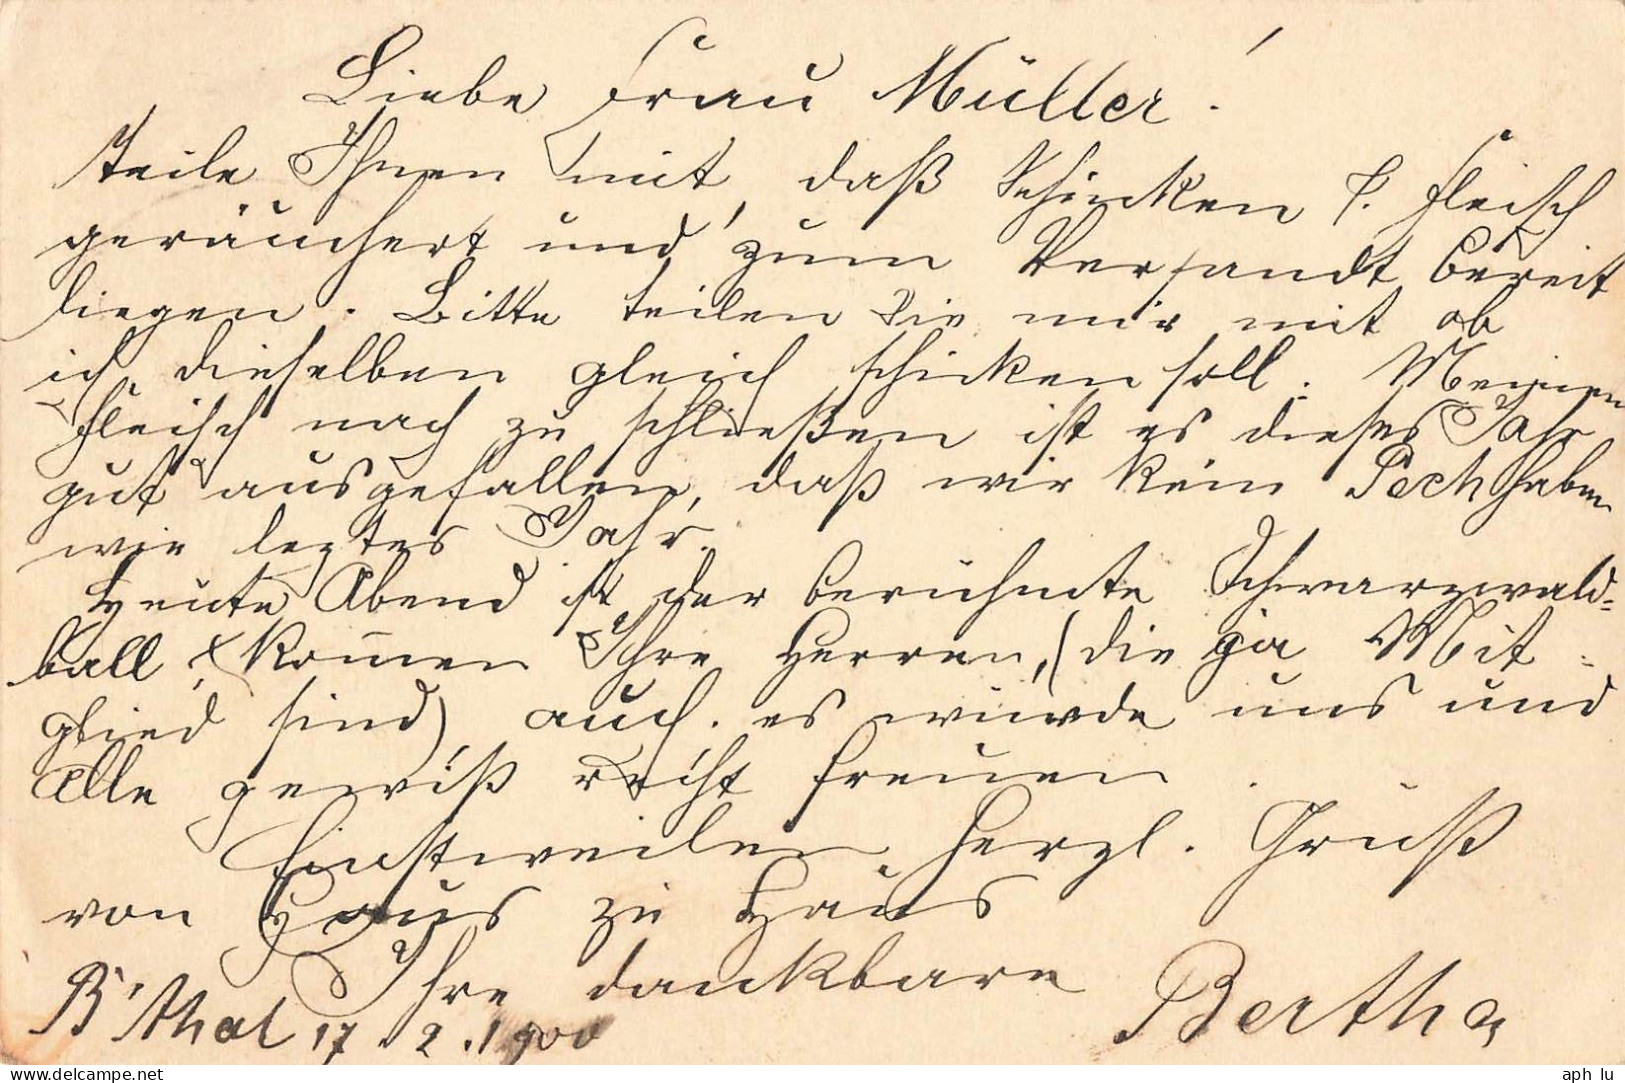 Liebe Frau Müller!
teile Ihnen mit, daß Schinken & Fleisch
geräuchert und zum Versandt bereit
liegen. Bitte teilen Sie mir mit ob
ich dieselben gleich schicken soll. Meinen
Fleisch nach zu schließen ist es dieses Jahr
gut ausgefallen, daß wir kein Pech haben
wie leztes Jahr.
Heute Abend ist der berühmte Schwarzwald=
ball & kom̅en Ihre Herren, (die ja Mit=
glied sind) auch. es würde uns und
Alle gewiß recht freuen.
Einstweilen herzl. Gruß
von Haus zu Haus
Ihre dankbare Bertha
B'thal 17.2.1900
aph lu
www.delcampe.net